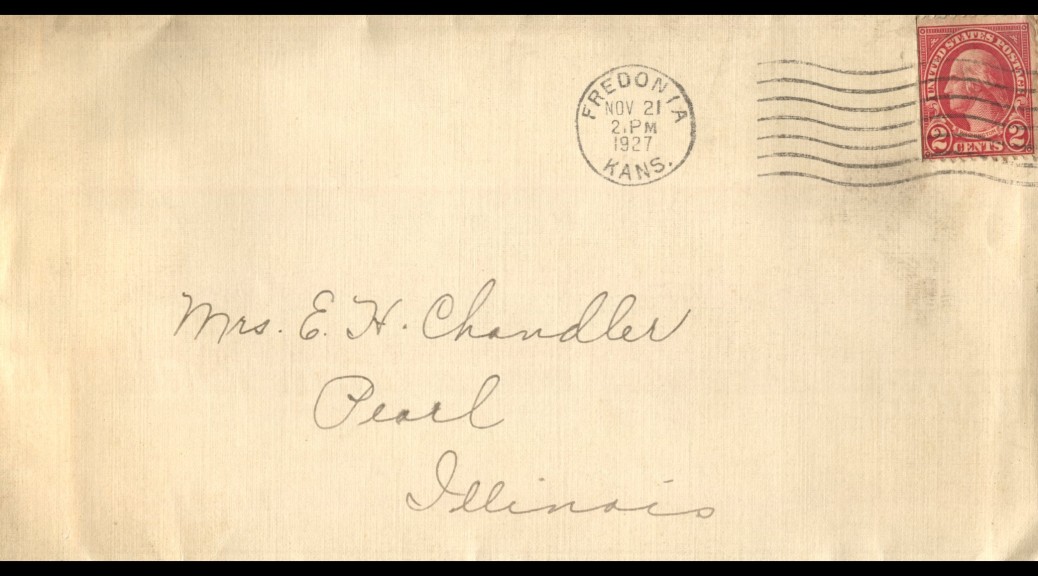 FREDONIA
NOV 21
2 PM
1927
KANS.
UNITED STATES POSTAGE
2 CENTS 2
Mrs. E. H. Chandler
Pearl
Illinois